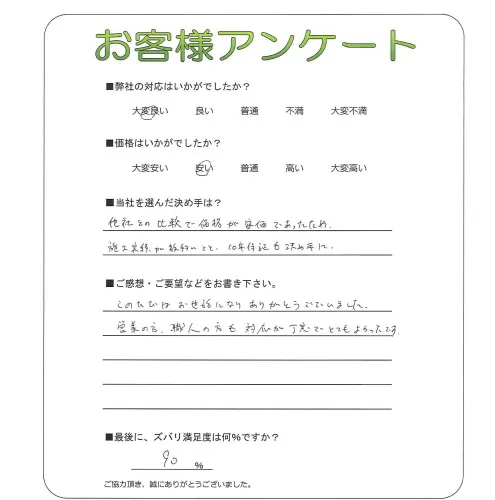 お客様アンケート
■弊社の対応はいかがでしたか？
大変良い 良い 普通 不満 大変不満
■価格はいかがでしたか？
大変安い 安い 普通 高い 大変高い
■当社を選んだ決め手は？
他社との比較で価格が安価であったため、
施工実績が数多いこと、10年保証も決め手に。
■ご感想・ご要望などをお書き下さい。
このたびはお世話になりありがとうございました。
営業の方、職人の方も対応が丁寧でとてもよかったです。
■最後に、ズバリ満足度は何%ですか？
90 %
ご協力頂き、誠にありがとうございました。